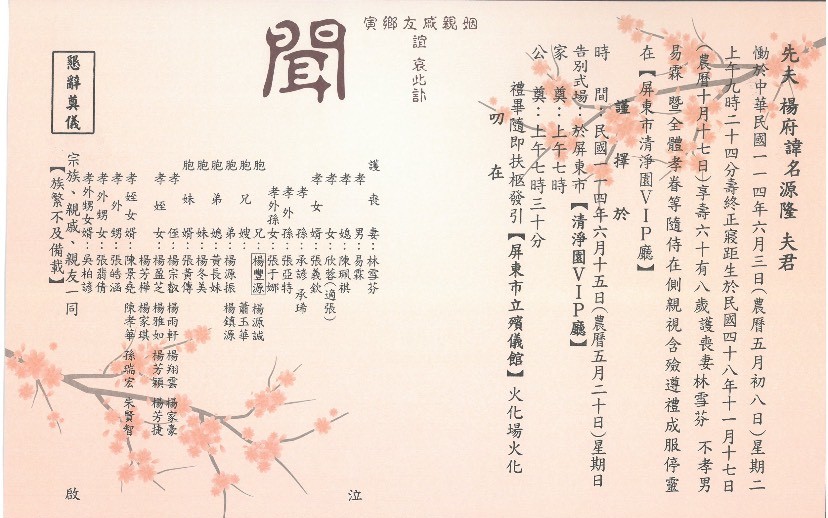 先夫 楊府諱名源隆 夫君
慟於中華民國一一四年六月三日(農曆五月初八日)星期二
上午九時二十四分壽終正寢距生於民國四十八年十一月十七日
(農曆十月十七日)享壽六十有八歲護喪妻林雪芬 不孝男
易霖 暨全體孝眷等隨侍在側親視含殮遵禮成服停靈
在【屏東市清淨園VIP廳】
謹擇於
時 間:民國一一四年六月十五日(農曆五月二十日)星期日
告別式場:於屏東市【清淨園VIP廳】
家 奠:上午七時
公 奠:上午七時三十分
禮畢隨即扶柩發引【屏東市立殯儀館】火化場火化
叨 在
姻親戚友鄉寅
誼 哀此訃
聞
護喪妻:林雪芬
孝男:易霖
孝媳:陳珮祺
孝女:欣蓉(適張)
孝女婿:張義欽
孝孫:承諺 承琋
孝外孫:張亞特
孝外孫女:張于娜
胞兄:楊豐源 楊源誠
胞兄嫂:蕭玉華
胞弟:楊源振 楊鎮源
胞弟媳:黃長妹
胞妹:楊冬美
胞妹婿:張黃傳
孝侄:楊宗叡 楊雨軒 楊翔雲 楊家豪
孝姪女:楊盈芝 楊雅如 楊芳穎 楊芳捷
楊芳樺 楊家琪
孝姪女婿:陳景堯 陳孝華 孫瑞宏 朱賢智
孝外甥:張皓涵
孝外甥女:張翡倩
孝外甥女婿:吳柏諺
宗族、親戚、親友一同
【族繁不及備載】
泣 啟
懇辭奠儀